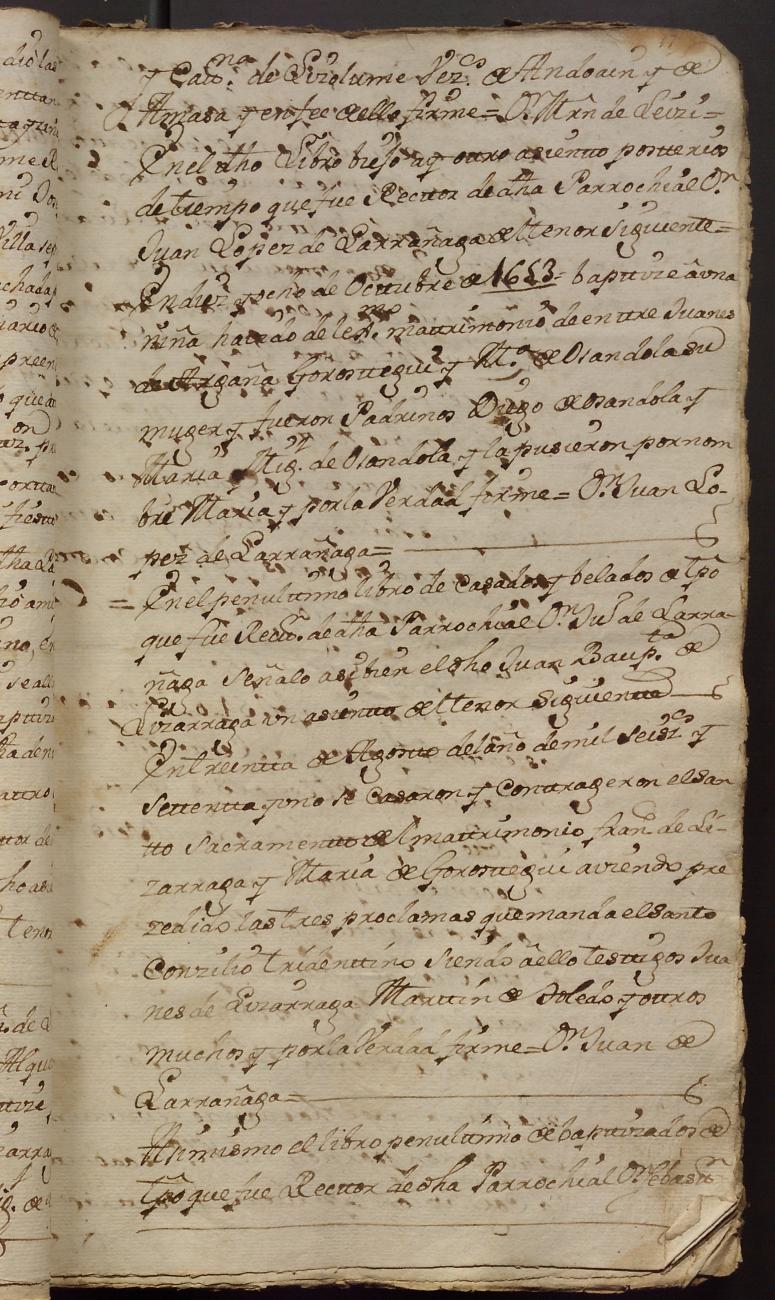 y Catna. de Eizolume Vezs. de Andoain y de
Amasa y en fee de ello firme = Dn. Mrn de Leizi=
En el dho Libro otro asiento posterior
de tiempo que fue Rector de dha Parrochial Dn.
Juan Lopez de Larrañaga del tenor siguiente =
En diez y ocho de Octubre de 1653 = baptize â una
niña havida de legmo. matrimonio de entre Juanes
de Argaña Gorostegui y Ma. de Osandola su
muger y fueron Padrinos Diego de Osandola y
Maria Mig. de Osandola y la pusieron por nom
bre Maria y por la Verdad firme = Dn. Juan Lo-
pez de Larrañaga =
= En el penultimo libro de casados y belados de tpô
que fue Rector. de dha Parrochial Dn. Jun de Larra-
ñaga señalo asibien el dho Juan Baupta. de
Lizarraga un asiento del tenor siguiente
En treinta de Agosto del año de mil seiszs. y
settenta y uno se casaron y contrageron el san
tto Sacramento del matrimonio, Frann. de Li-
zarraga y Maria de Gorostegui aviendo pre
zedido las tres proclamas que manda el santo
Conzilio tridentino siendo a ello testigos Jua
nes de Lizarraga Martin de Toledo y otros
muchos y por la Verdad firme = Dn. Juan de
Larrañaga =
Asimismo el libro penultimo de baptizados de
tpô que fue Rector de dha Parrochial Dn. Sebasn